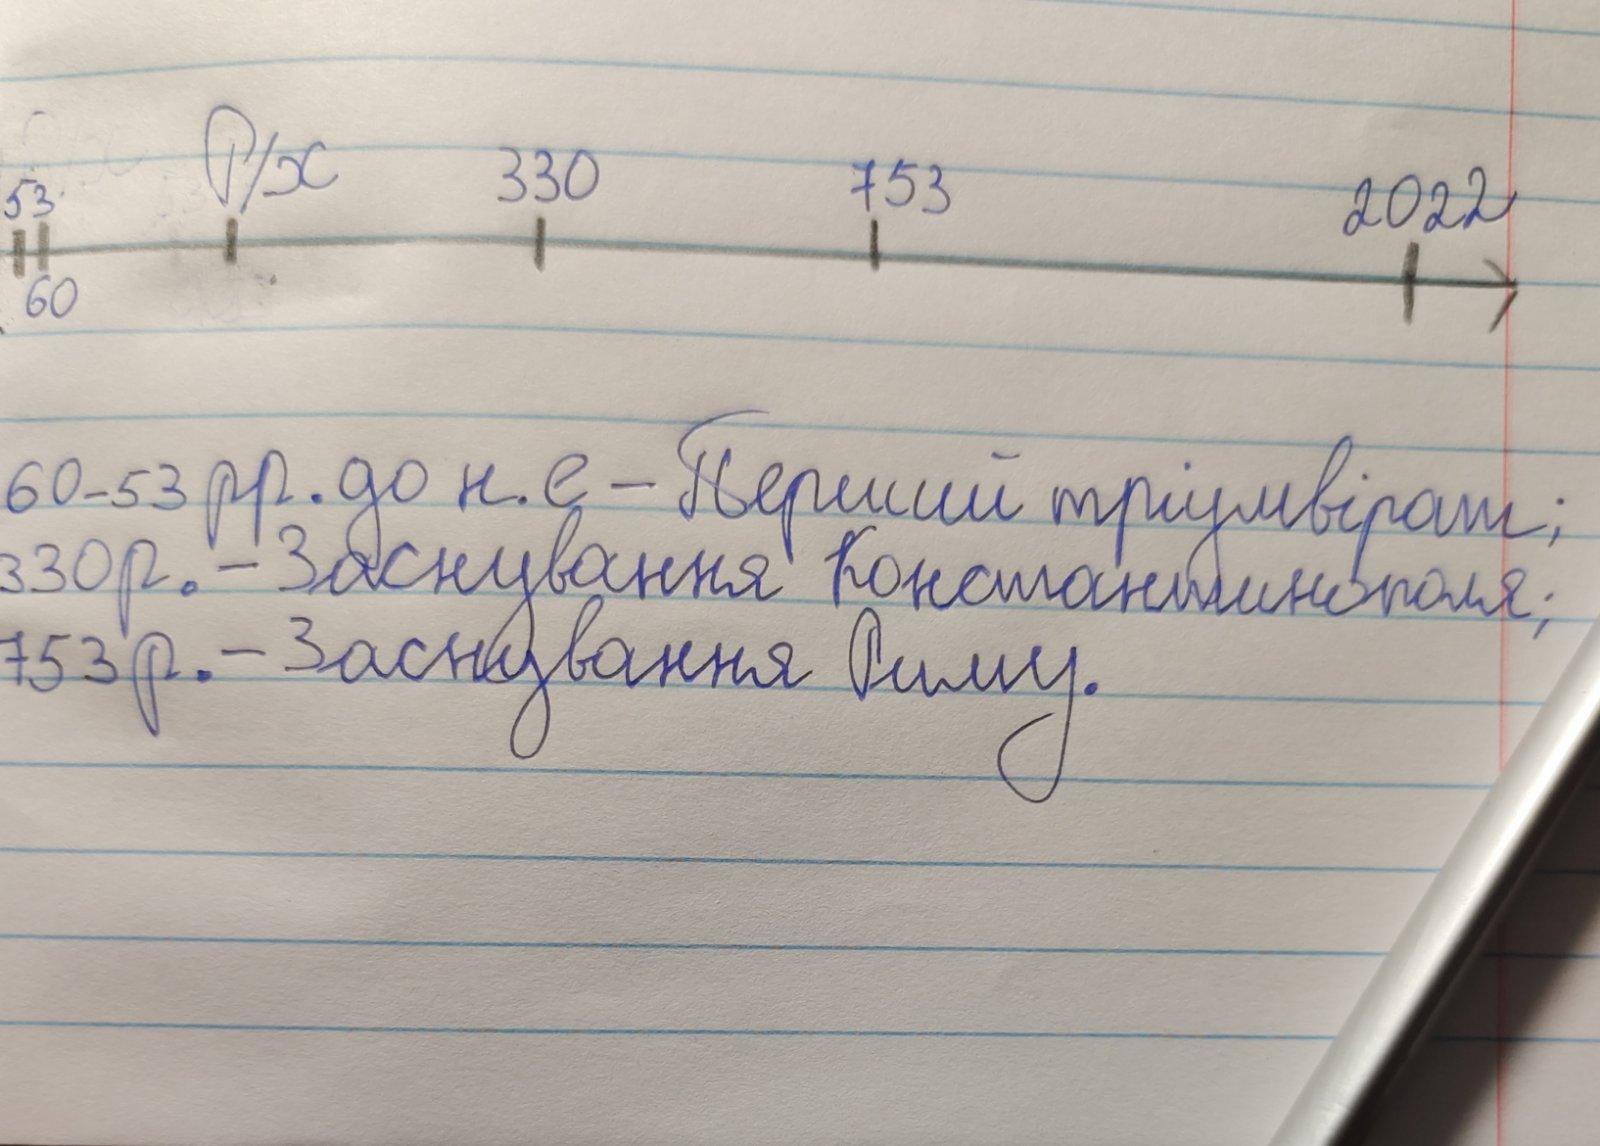 53 Р/Х 330 753 2022
60
60-53 рр. до н.е - Перший тріумвірат;
330р. - Заснування Константинополя;
753р. - Заснування Риму.